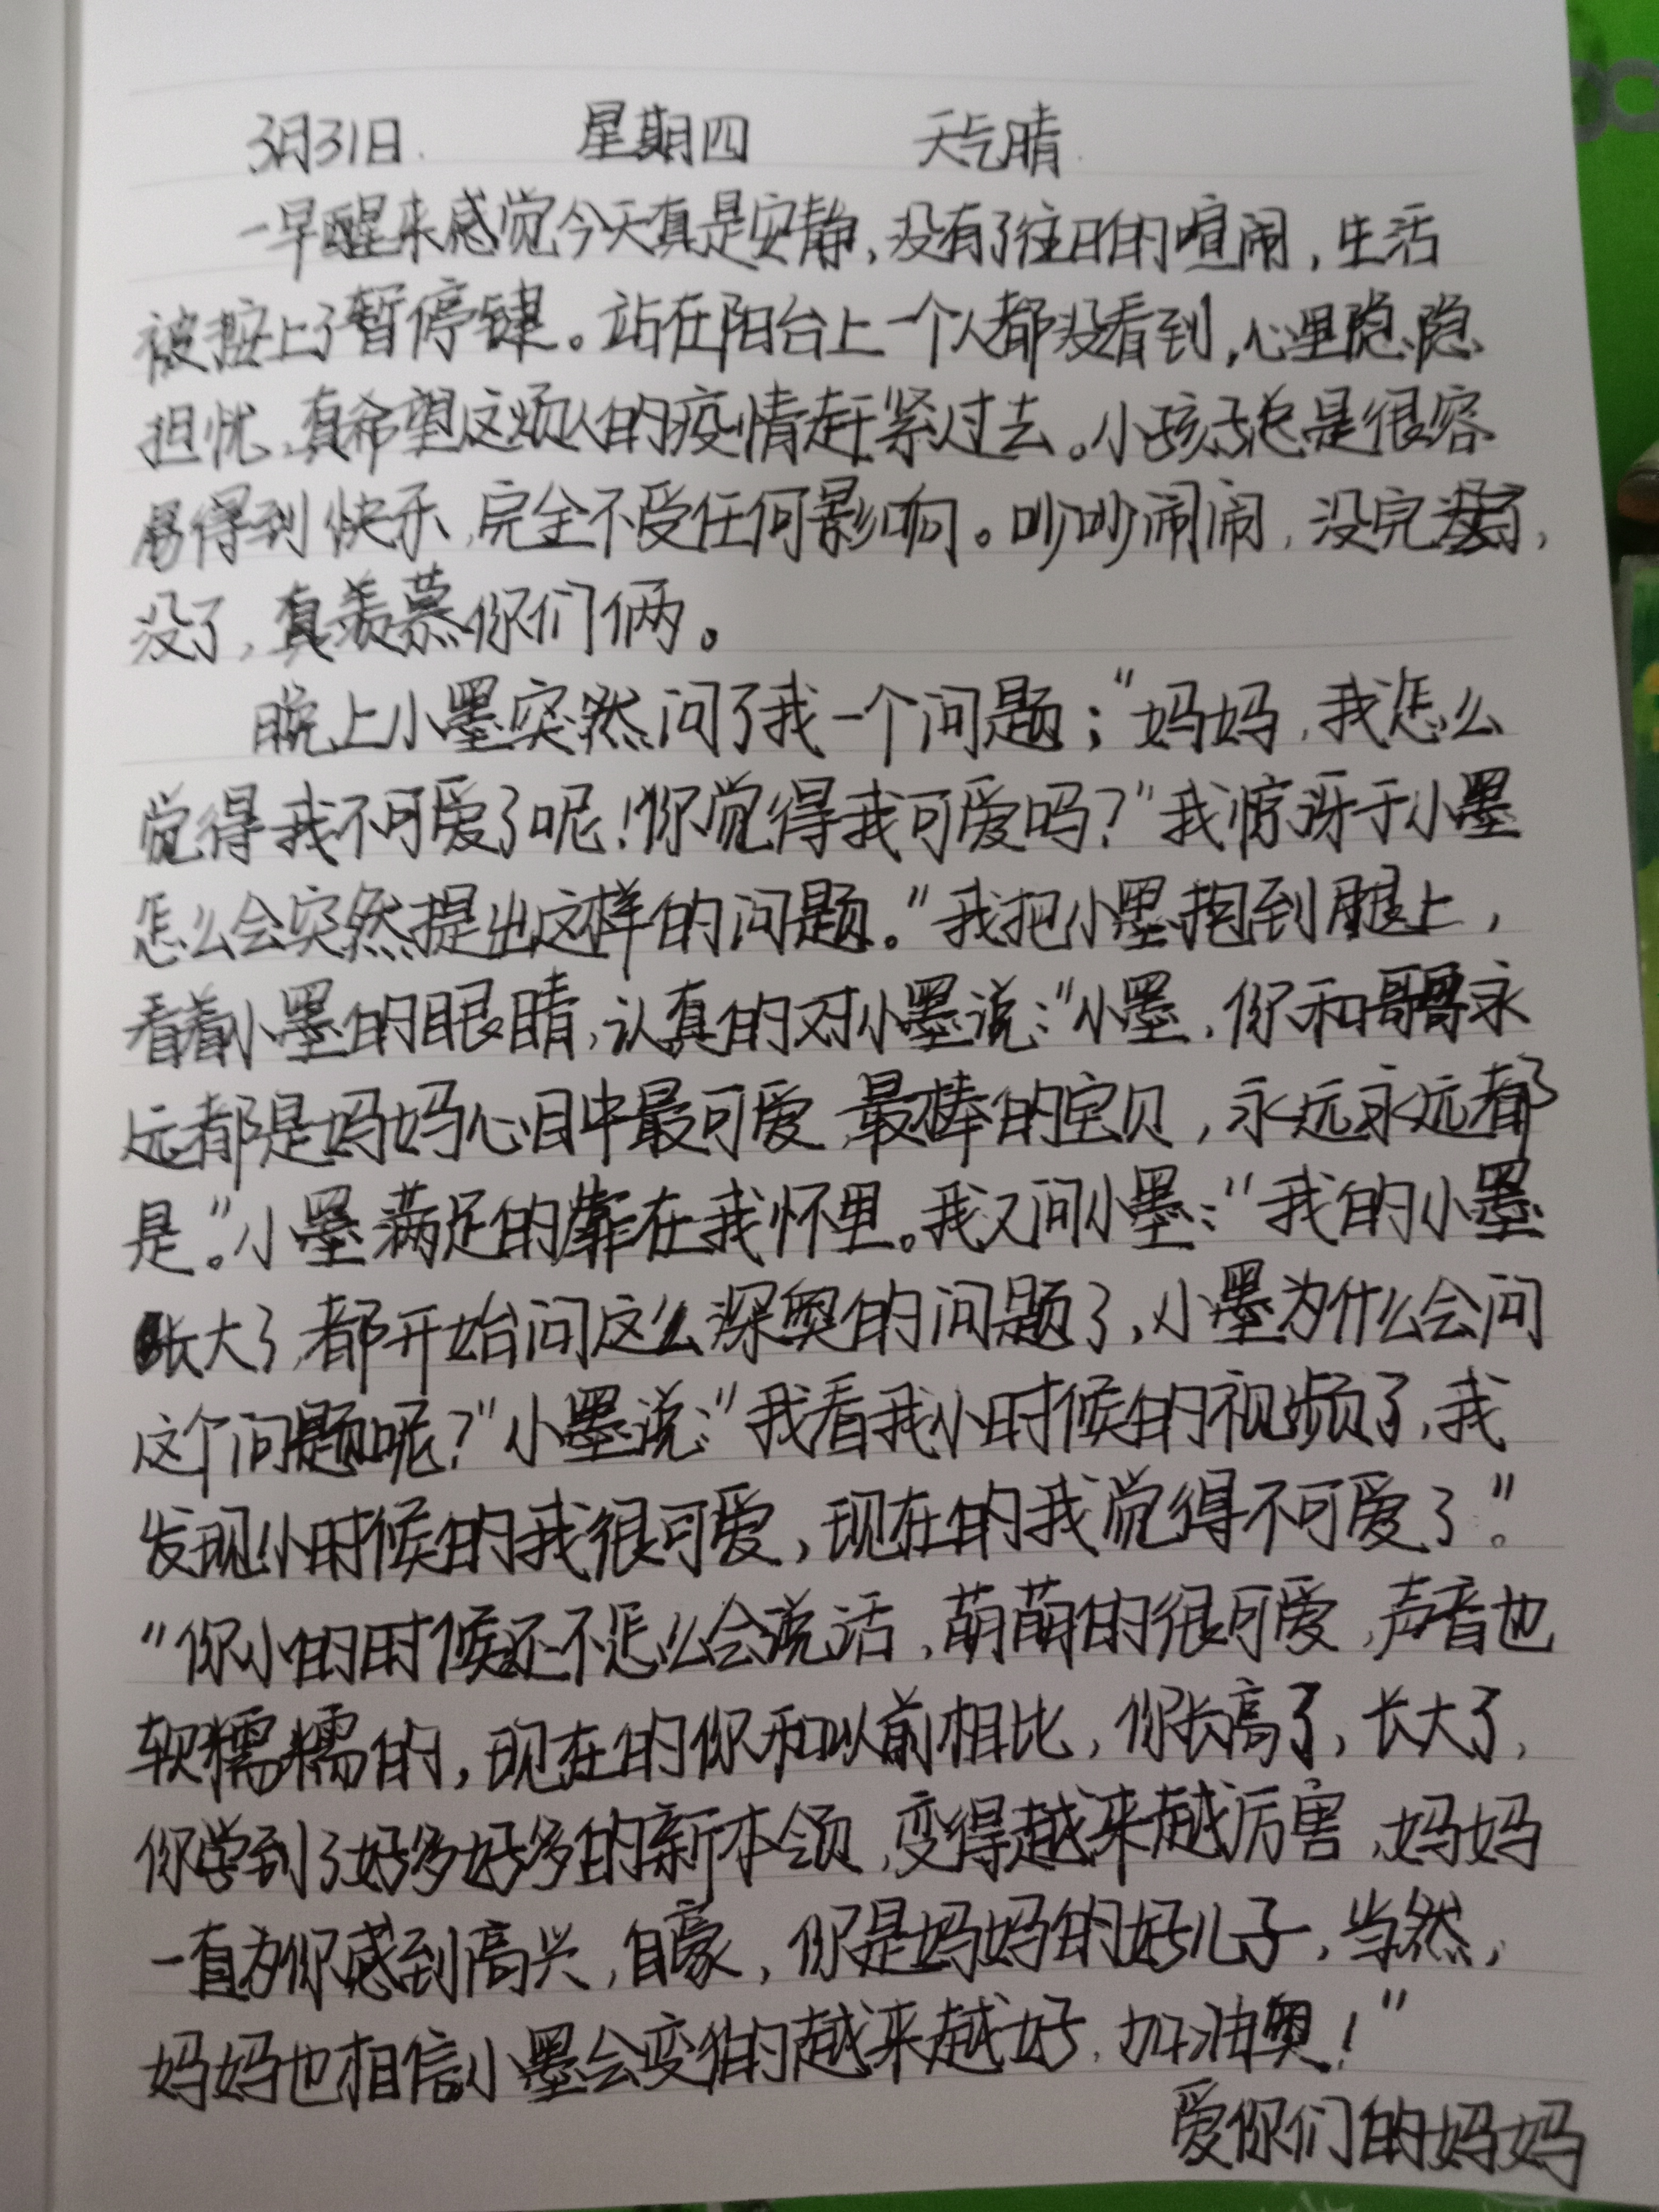 3月31日. 星期四 天气晴.
一早醒来感觉今天真是安静,没有了往日的喧闹,生活
被按上了暂停键。站在阳台上一个人都没看到,心里隐隐
担忧,真希望这烦人的疫情赶紧过去。小孩子总是很容
易得到快乐,完全不受任何影响。吵吵闹闹,没完没了,
没了,真羡慕你们俩。
晚上小墨突然问了我一个问题;"妈妈,我怎么
觉得我不可爱了呢!你觉得我可爱吗?"我惊讶于小墨
怎么会突然提出这样的问题。"我把小墨抱到腿上,
看着小墨的眼睛,认真的对小墨说:"小墨,你和哥哥永
远都是妈妈心目中最可爱,最棒的宝贝,永远永远都
是。"小墨满足的靠在我怀里。我又问小墨:"我的小墨
长大了,都开始问这么深奥的问题了,小墨为什么会问
这个问题呢?"小墨说:"我看我小时候的视频了,我
发现小时候的我很可爱,现在的我觉得不可爱了"。
"你小的时候还不怎么会说话,萌萌的很可爱,声音也
软糯糯的,现在的你和以前相比,你长高了,长大了,
你学到了好多好多的新本领,变得越来越厉害,妈妈
一直为你感到高兴,自豪,你是妈妈的好儿子,当然,
妈妈也相信小墨会变的越来越好,加油奥!"
爱你们的妈妈